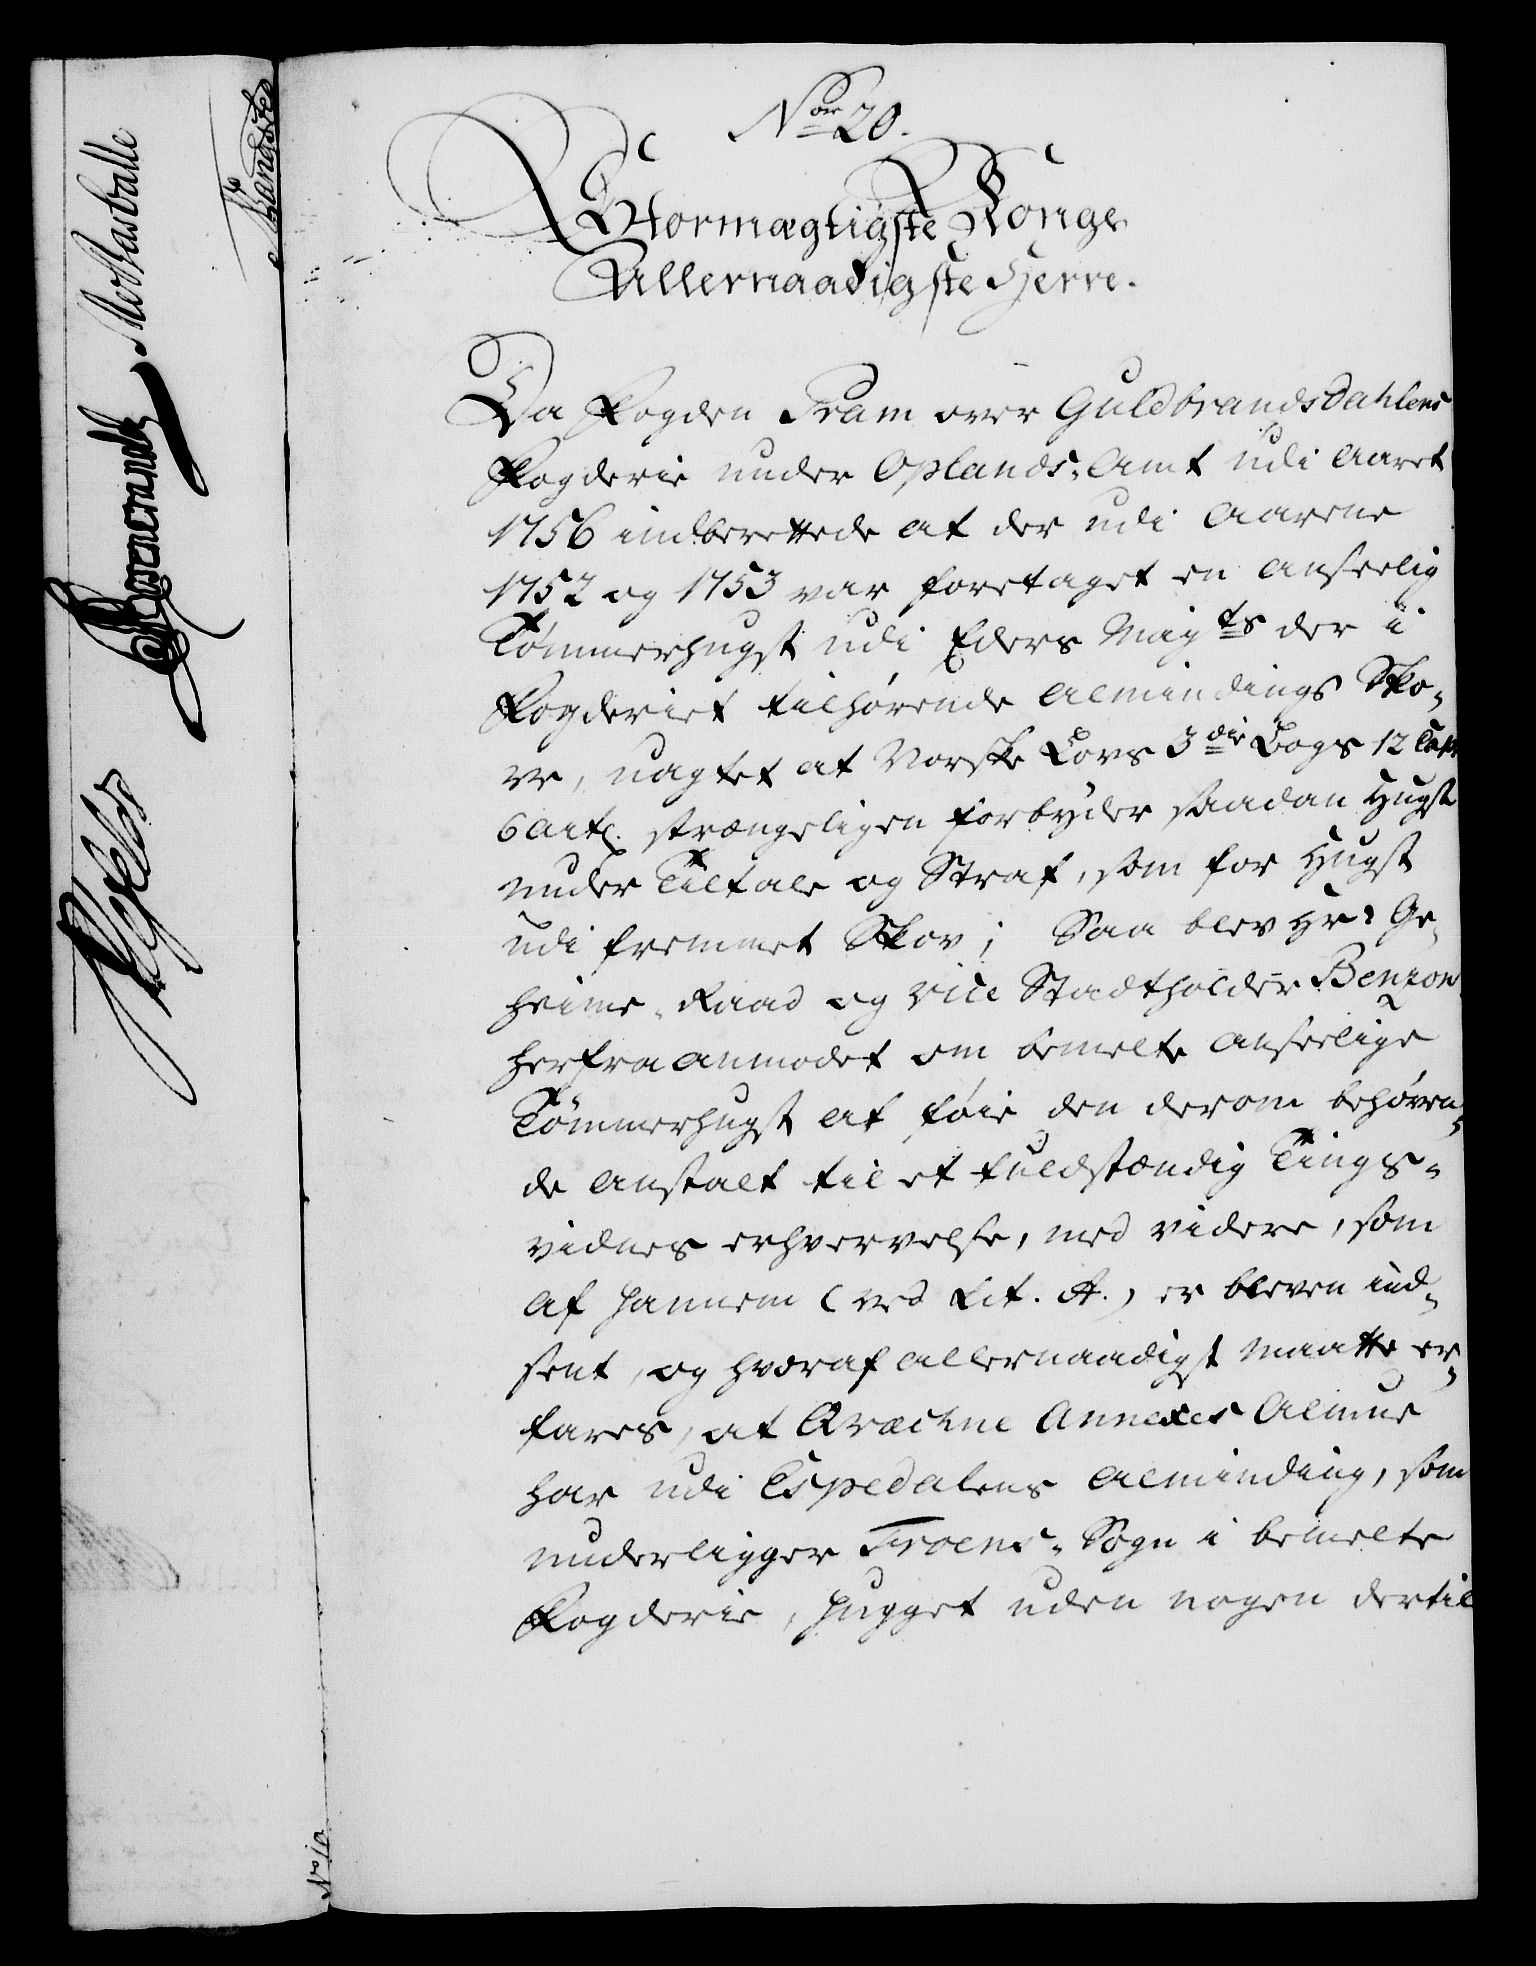 Nor 20.
Stormægtigste Konge
Allernaadigste Herre.
Da Fogden Pram over Guldbrandsdahlens
Fogderie under Oplands-Amt udi Aaret
1756 indberettede at der udi Aarene
1752 og 1753 var foretaget en anseelig
Tømmerhugst udi Eders Mayts der i
Fogderiet tilhørende Almindings Sko-
ve, uagtet at Norske Lovs 3die Bogs 12 Cap.
6 Artl. strængeligen forbyder saadan Hugst
under Tiltale og Straf, som for Hugst
udi fremmet Skov; Saa blev Hr: Ge-
heime-Raad og Vice Stadtholder Benzon
herfra anmodet om bemelte anseelige
Tømmerhugst at føie den derom behøren-
de Anstalt til et fuldstændig Tings-
vidnes erhvervelse, med videre, som
af hannem (ved Lit. A.) er bleven ind-
sent, og hvoraf allernaadigst maatte er-
fares, at Qvæchne Annexes Almue
har udi Espedalens Alminding, som
underligger Froens-Sogn i bemelte
Fogderie, hugget uden nogen dertil
Rosencrandtz
No 10